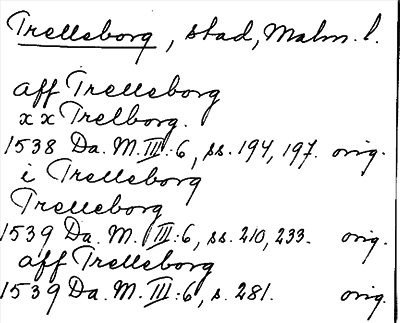 Trelleborg, stad, Malm. l.
aff Trelleborg
xx Trelborg.
1538 Da. M. III:6, ss. 194, 197. orig.
i Trelleborg
Trelleborg
1539 Da. M. III:6, ss. 210, 233. orig.
aff Trelleborg
1539 Da. M. III:6, s. 281. orig.